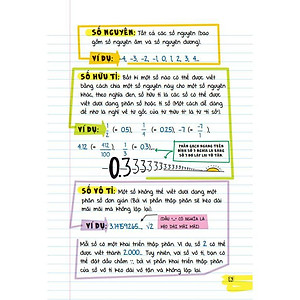 SỐ NGUYÊN: Tất cả các số nguyên (bao
gồm số nguyên âm và số nguyên dương).
VÍ DỤ: ...-4, -3, -2, -1, 0, 1, 2, 3, 4...
SỐ HỮU TỈ: Bất kì một số nào có thể được viết
bằng cách chia một số nguyên này cho một số nguyên
khác, theo nghĩa đen, số hữu tỉ là các số có thể được
viết dưới dạng phân số hoặc tỉ số (Một cách dễ dàng
để nhớ là nghĩ về từ gốc của từ "hữu tỉ" chính là tỉ số).
VÍ DỤ: 1/2 (= 0,5), 1/4 (= 0,25), -7 (= -7/1),
4,12 (= 412/100), 1/3 (= 0,3)...
PHẦN GẠCH NGANG TRÊN
ĐỈNH SỐ 3 NGHĨA LÀ RẰNG
SỐ 3 ĐÓ LẶP LẠI VÔ TẬN.
-0,3333333333333
SỐ VÔ TỈ: Một số không thể viết dưới dạng một
phân số đơn giản (Bởi vì phần thập phân sẽ kéo dài
mãi mãi mà không lặp lại).
VÍ DỤ: 3,14159265..., √2
DẤU "..." CÓ NGHĨA LÀ
KÉO DÀI MÃI MÃI
Mỗi số có một khai triển thập phân. Ví dụ, số 2 có thể
được viết thành 2,000... Tuy nhiên, với số vô tỉ, bạn có
thể đặt dấu chấm ..., bởi vì phần khai triển thập phân
của số vô tỉ kéo dài vô tận và không lặp lại.